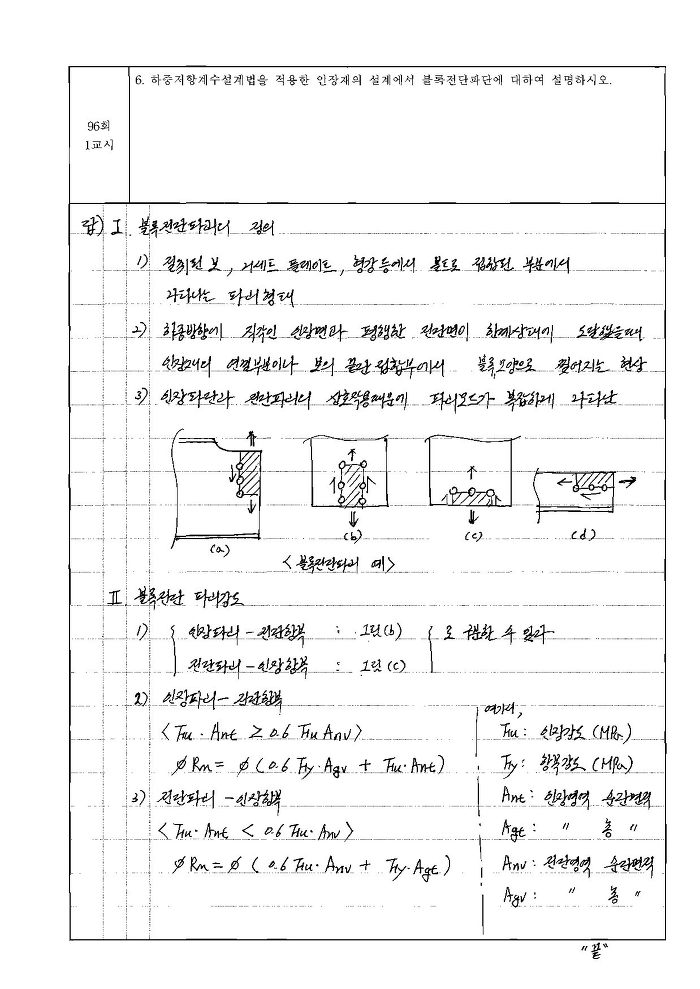 6. 하중저항계수설계법을 적용한 인장재의 설계에서 블록전단파단에 대하여 설명하시오.
96회
1교시
답) I 블록전단파괴의 정의
1) 절취된 보, 거세트 플레이트, 형강 등에서 볼트로 접합된 부분에서
나타나는 파괴형태
2) 하중방향에 직각인 인장면과 평행한 전단면이 한계상태에 도달했을때
인장재의 연결부분이나 보의 끝단 접합부에서 블록모양으로 찢어지는 현상
3) 인장파단과 전단파괴의 상호작용때문에 파괴모드가 복잡하게 나타남
(a) (b) (c) (d)
<블록전단파괴 예>
II 블록전단 파괴강도
1) { 인장파괴 - 전단항복 : 그림(b) { 로 구분할 수 있다.
전단파괴 - 인장항복 : 그림(c)
2) 인장파괴 - 전단항복
<Fu · Ant ≥ 0.6 Fu Anv>
ø Rn = ø (0.6 Fy · Agv + Fu · Ant)
3) 전단파괴 - 인장항복
<Fu · Ant < 0.6 Fu · Anv>
ø Rn = ø ( 0.6 Fu · Anv + Fy · Agt )
여기서,
Fu : 인장강도 (MPa)
Fy : 항복강도 (MPa)
Ant : 인장영역 순단면적
Agt : " 총 "
Anv : 전단영역 순단면적
Agv : " 총 "
"끝"